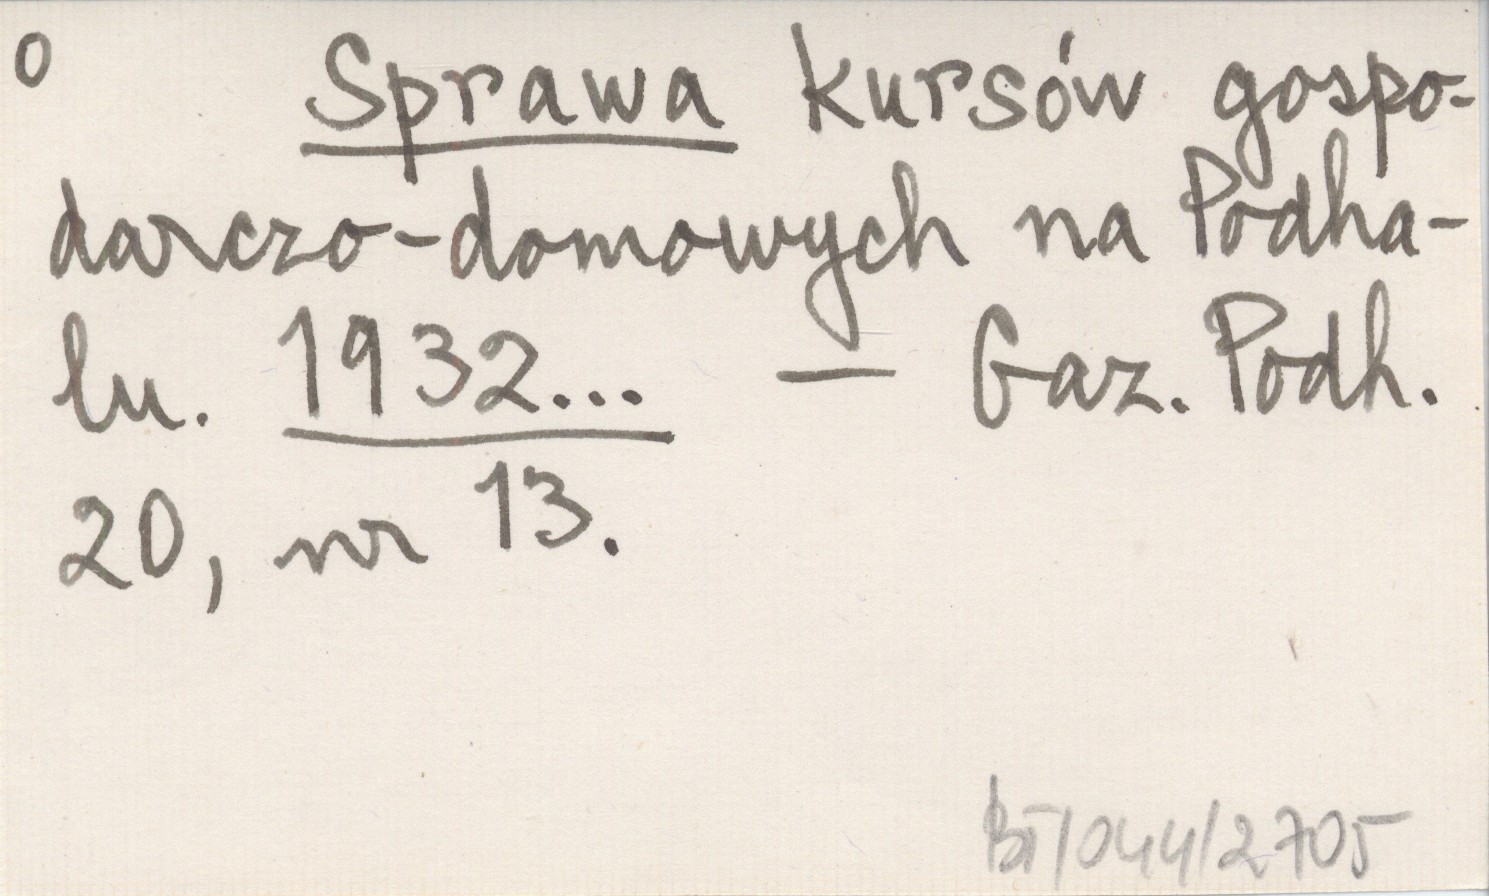 o Sprawa kursów gospo-
darczo-domowych na Podha-
lu. 1932... — Gaz. Podh.
20, nr 13.
BT/044/2705